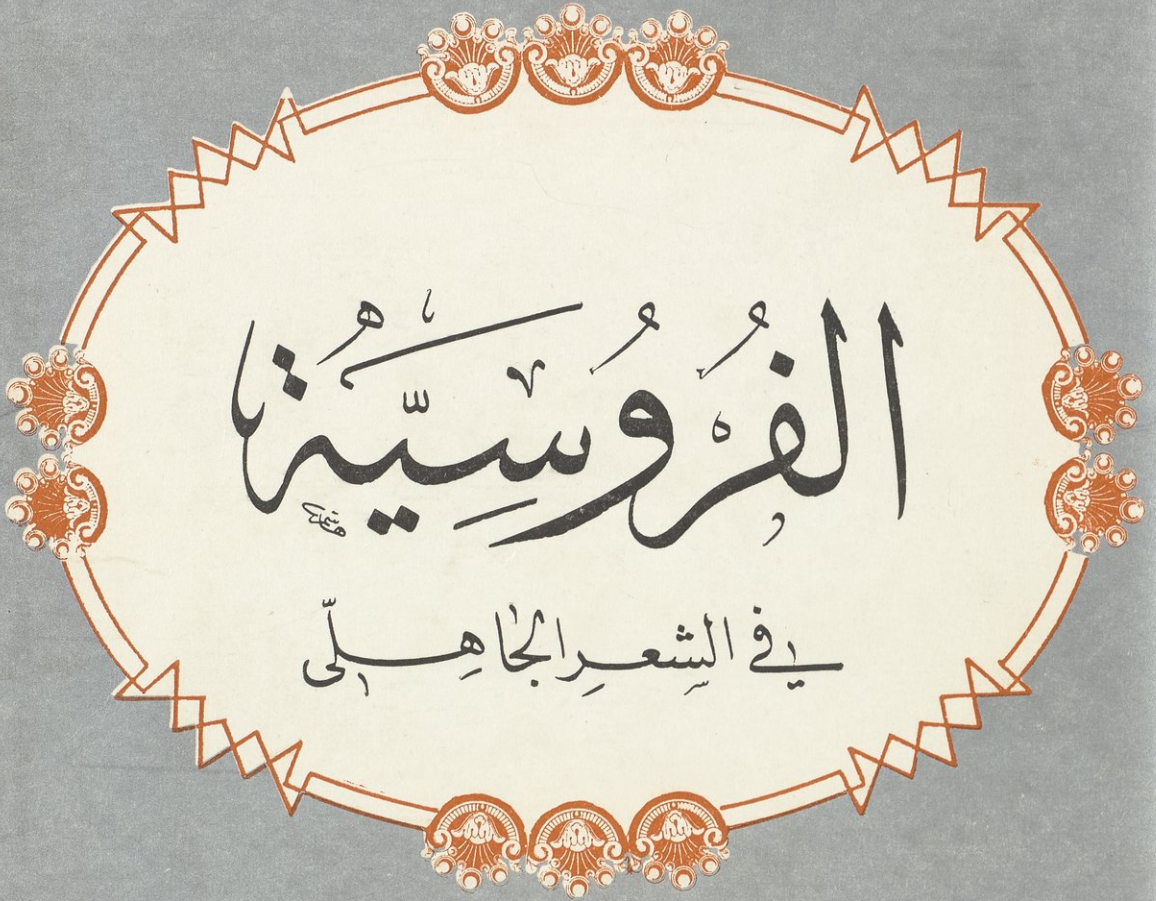 الفُرُوسِيَّةُ
في الشعرِ الجَاهِلىّ